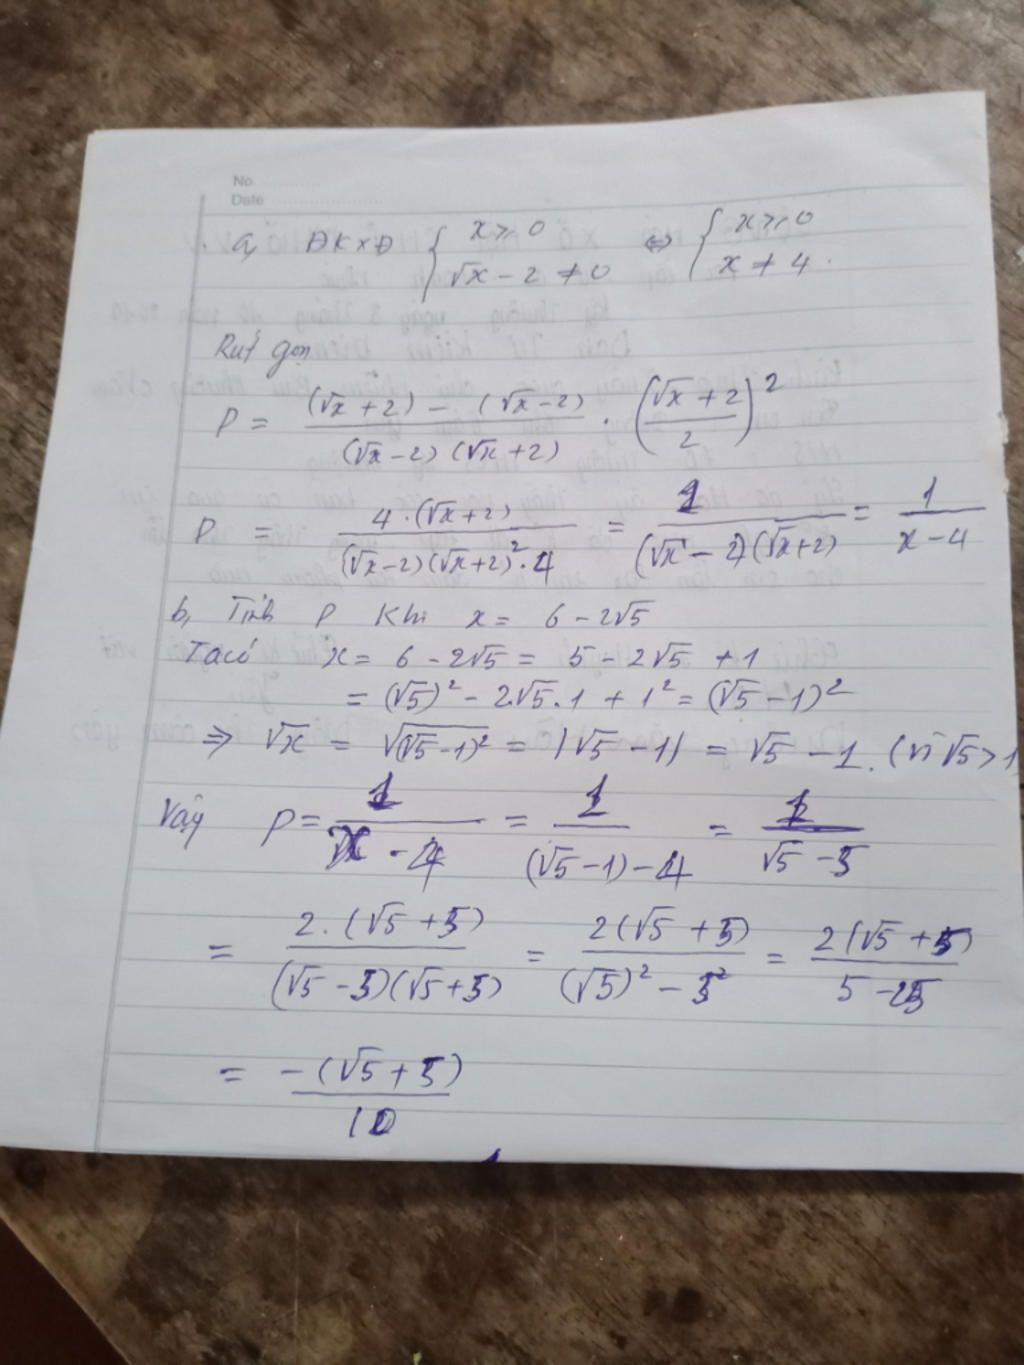 No.
Date
a, ĐKXĐ { x ≥ 0 ; √x - 2 ≠ 0 ⇔ { x ≥ 0 ; x ≠ 4.
Rút gọn
P = ((√x + 2) - (√x - 2)) / ((√x - 2)(√x + 2)) . ((√x + 2)/2)²
P = 4.(√x + 2) / ((√x - 2)(√x + 2)².4) = 1 / ((√x - 2)(√x + 2)) = 1 / (x - 4)
b, Tính P Khi x = 6 - 2√5
Ta có x = 6 - 2√5 = 5 - 2√5 + 1
= (√5)² - 2.√5.1 + 1² = (√5 - 1)²
⇒ √x = √(√5 - 1)² = |√5 - 1| = √5 - 1. (vì √5 > 1
Vậy P = 1 / (x - 4) = 1 / ((√5 - 1) - 4) = 1 / (√5 - 5)
= 2.(√5 + 5) / ((√5 - 5)(√5 + 5)) = 2(√5 + 5) / ((√5)² - 5²) = 2(√5 + 5) / (5 - 25)
= -(√5 + 5) / 10